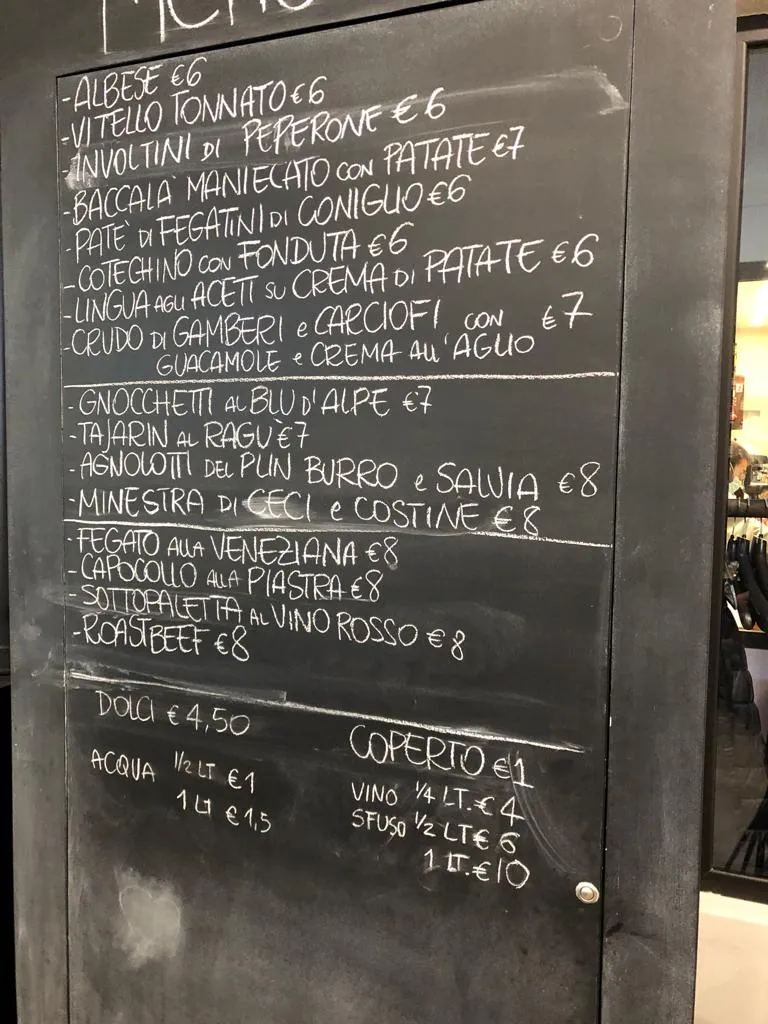 MENU
-ALBESE €6
-VITELLO TONNATO €6
-INVOLTINI DI PEPERONE €6
-BACCALA' MANIECATO CON PATATE €7
-PATE' DI FEGATINI DI CONIGLIO €6
-COTECHINO CON FONDUTA €6
-LINGUA AGLI ACETI SU CREMA DI PATATE €6
-CRUDO DI GAMBERI e CARCIOFI CON €7
GUACAMOLE e CREMA ALL'AGLIO
-GNOCCHETTI AL BLU D'ALPE €7
-TAJARIN AL RAGU' €7
-AGNOLOTTI DEL PLIN BURRO e SALVIA €8
-MINESTRA DI CECI e COSTINE €8
-FEGATO ALLA VENEZIANA €8
-CAPOCOLLO ALLA PIASTRA €8
-SOTTOPALETTA AL VINO ROSSO €8
-ROASTBEEF €8
DOLCI €4,50
ACQUA 1/2 LT €1
1 LT €1,5
COPERTO €1
VINO 1/4 LT. €4
SFUSO 1/2 LT €6
1 LT. €10